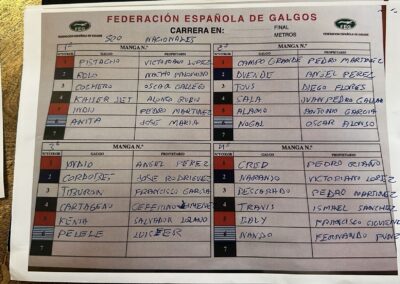 FEDERACIÓN ESPAÑOLA DE GALGOS
FEDERACIÓN ESPAÑOLA DE GALGOS
CARRERA EN:
FINAL
METROS
FEDERACIÓN ESPAÑOLA DE GALGOS
NACIONALES
1ª MANGA N.º
N.º/COLOR GALGO PROPIETARIO
1 PISTACHO VICTORIANO LOPEZ
2 POLO
3 COCHERO OSCAR GALLEGO
4 KAISER JET ALONSO RUBIO
5 INDIO PEDRO MARTINEZ
6 ANITA JOSE MARIA
7
2ª MANGA N.º
N.º/COLOR GALGO PROPIETARIO
1 CAMPO GRANDE PEDRO MARTINEZ
2 DUENDE ANGEL PEREZ
3 TOUS DIEGO FLORES
4 SALA JUAN PEDRO
5 ALAMO ANTONIO GARCIA
6 NOGAL OSCAR ALONSO
7
3ª MANGA N.º
N.º/COLOR GALGO PROPIETARIO
1 ANGEL PEREZ
2 CORDOBES JOSE RODRIGUEZ
3 TIBURON FRANCISCO GARCIA
4 CARTAGENO CEFERINO JIMENEZ
5 KENIA SALVADOR LOZANO
6 PELELE
7
4ª MANGA N.º
N.º/COLOR GALGO PROPIETARIO
1 CRED PEDRO
2 NARANJO VICTORIANO LOPEZ
3 DESCARADO PEDRO MARTINEZ
4 TRAVIS ISMAEL SANCHEZ
5 FRANCISCO
6 NANDO FERNANDO
7